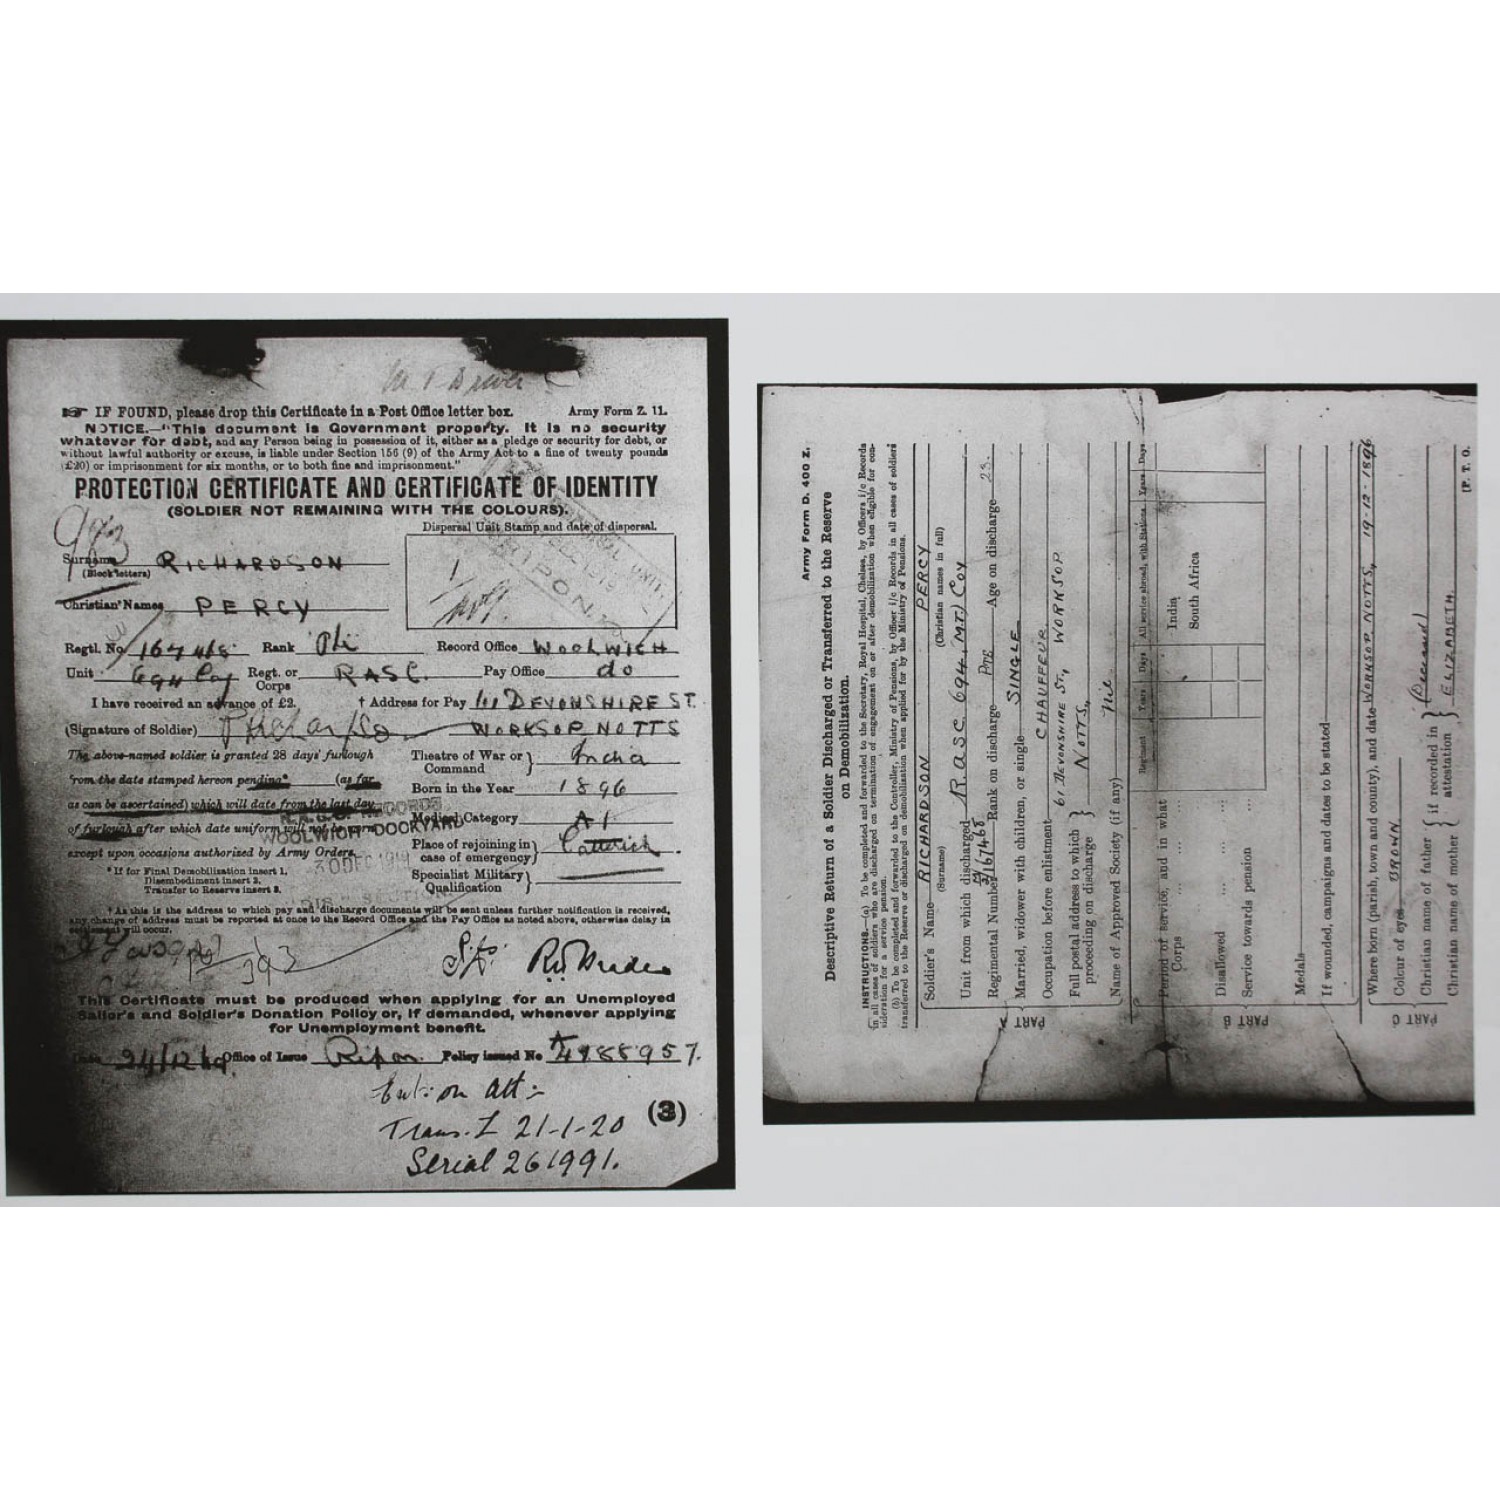 M T Driver
IF FOUND, please drop this Certificate in a Post Office letter box. Army Form Z. 11.
NOTICE.—"This document is Government property. It is no security
whatever for debt, and any Person being in possession of it, either as a pledge or security for debt, or
without lawful authority or excuse, is liable under Section 156 (9) of the Army Act to a fine of twenty pounds
(£20) or imprisonment for six months, or to both fine and imprisonment."
PROTECTION CERTIFICATE AND CERTIFICATE OF IDENTITY
(SOLDIER NOT REMAINING WITH THE COLOURS).
993
Dispersal Unit Stamp and date of dispersal.
Surname RICHARDSON
(Block letters)
RIPON
Christian Names PERCY
Regtl. No. Rank Pte Record Office WOOLWICH
Unit 694 Coy Regt. or Corps RASC. Pay Office do
I have received an advance of £2. † Address for Pay DEVONSHIRE ST.
(Signature of Soldier) P Richardson WORKSOP NOTTS
The above-named soldier is granted 28 days' furlough
from the date stamped hereon pending* (as far
as can be ascertained) which will date from the last day
of furlough after which date uniform will not be worn
except upon occasions authorized by Army Orders.
* If for Final Demobilization insert 1.
Disembodiment insert 2.
Transfer to Reserve insert 3.
Theatre of War or Command } India
Born in the Year 1896
Medical Category A1
Place of rejoining in case of emergency } Catterick.
Specialist Military Qualification }
RECORDS
WOOLWICH DOCKYARD
30 DEC 1919
† As this is the address to which pay and discharge documents will be sent unless further notification is received,
any change of address must be reported at once to the Record Office and the Pay Office as noted above, otherwise delay in
settlement will occur.
This Certificate must be produced when applying for an Unemployed
Sailor's and Soldier's Donation Policy or, if demanded, whenever applying
for Unemployment benefit.
Date 24/12/19 Office of Issue Ripon. Policy issued No A 4988957.
Trans. Z 21-1-20
(3)
Serial 261991.
Army Form D. 400 Z.
Descriptive Return of a Soldier Discharged or Transferred to the Reserve
on Demobilization.
INSTRUCTIONS.—(a) To be completed and forwarded to the Secretary, Royal Hospital, Chelsea, by Officers i/c Records
in all cases of soldiers who are discharged on termination of engagement on or after demobilization when eligible for con-
sideration for a service pension.
(b) To be completed and forwarded to the Controller, Ministry of Pensions, by Officer i/c Records in all cases of soldiers
transferred to the Reserve or discharged on demobilisation when applied for by the Ministry of Pensions.
PART A
Soldier's Name RICHARDSON PERCY
(Surname) (Christian names in full)
Unit from which discharged RASC 694 (M.T.) COY
Regimental Number M/167468 Rank on discharge PTE Age on discharge 23.
Married, widower with children, or single SINGLE
Occupation before enlistment CHAUFFEUR
Full postal address to which proceeding on discharge } 61 DEVONSHIRE ST., WORKSOP
NOTTS,
Name of Approved Society (if any) Nil
PART B
Regiment Years Days All service abroad, with Stations Years Days
Period of service, and in what Corps ... ... India
South Africa
Disallowed ... ...
Service towards pension ...
Medals
If wounded, campaigns and dates to be stated
PART C
Where born (parish, town and county), and date WORKSOP NOTTS, 19-12-1896
Colour of eyes BROWN
Christian name of father { if recorded in } (Deceased)
Christian name of mother { attestation } ELIZABETH.
[P. T. O.